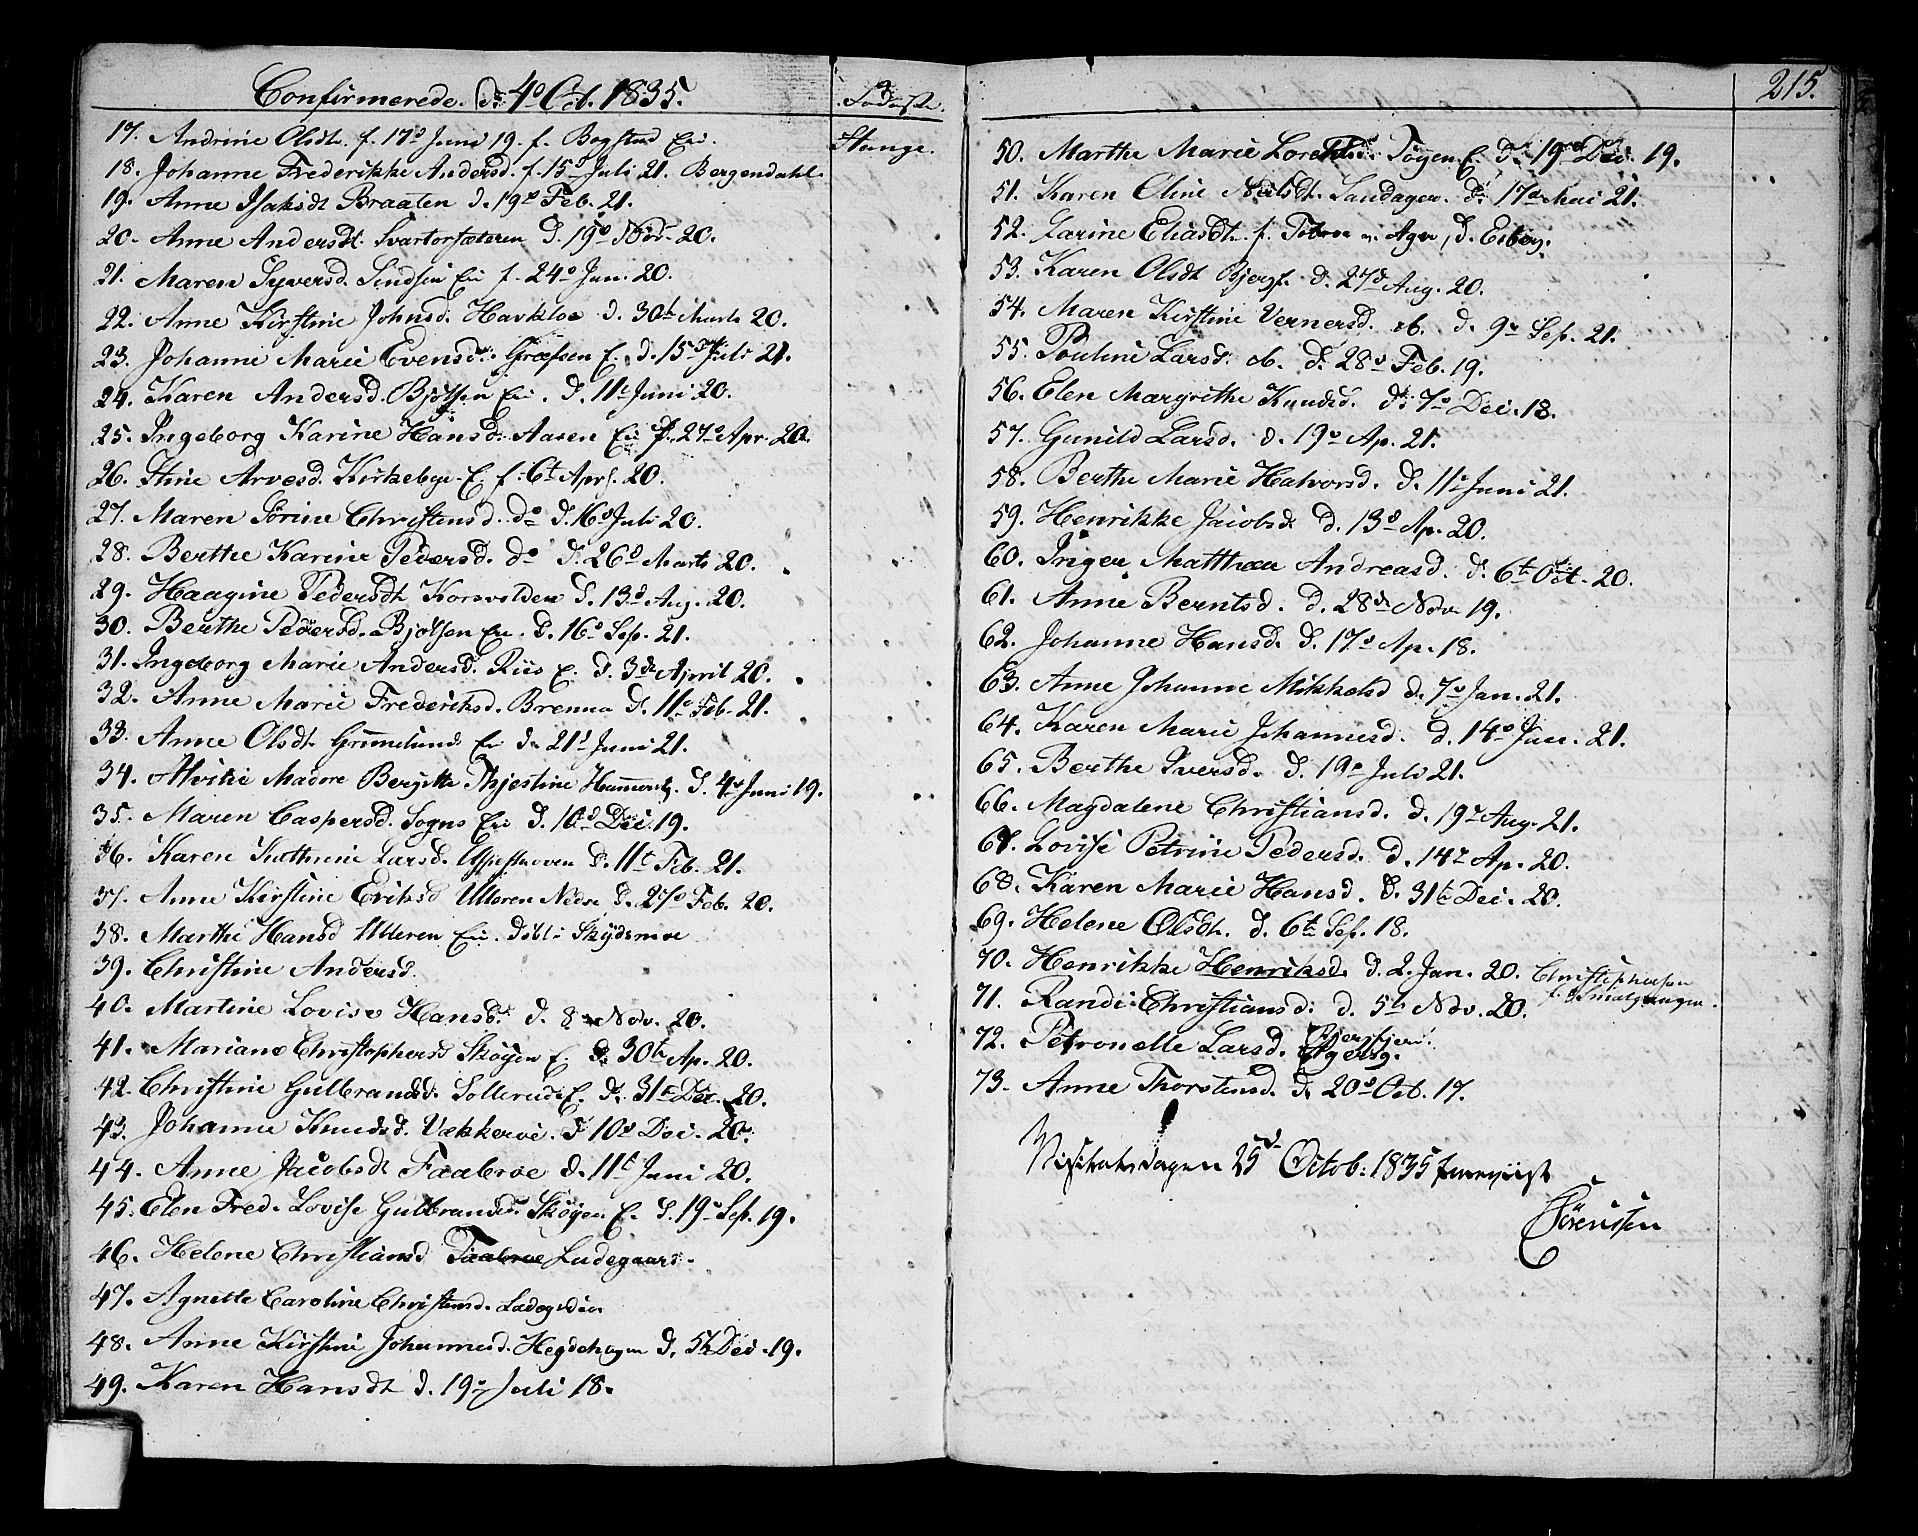 Confirmerede d: 4o Oct. 1835.
17. Andrine Olsdt. f. 17o Juni 19. f. Bogstad Eie. Stange.
18. Johanne Frederikke Andersd. f. 15d Juli 21. Bergendahl.
19. Anne Isaksdt Braaten d. 19o Feb. 21.
20. Anne Andersdt. Svartorsæteren d. 19o Nov. 20.
21. Maren Syversd. Sindsen Eie f. 24o Jan. 20.
22. Anne Kirstine Johnsd. Havkloe d. 30t Marts 20.
23. Johanne Marie Evensd: Græfsen E. d. 15d Juli 21.
24. Karen Andersd. Bjølsen Eie. d. 11t Juni 20.
25. Ingeborg Karine Hansd: Aasen Eie f. 27o Apr. 20.
26. Stine Arvesd. Kirkebye E. f. 6t Apr. 20.
27. Maren Sørine Christensd. do d. 16o Juli 20.
28. Berthe Karine Pedersd. do d. 26o Marts 20.
29. Haagine Pedersdt Korsvolden d. 13d Aug. 20.
30. Berthe Pedersd. Bjølsen Eie. d. 16o Sep. 21.
31. Ingeborg Marie Andersd. Riis E. d. 3de April 20.
32. Anne Marie Frederiksd. Brenna d. 11o Feb. 21.
33. Anne Olsdt. Grimelund Eie d. 21d Juni 21.
34. Madore Bergitte d. 4o Juni 19.
35. Maren Caspersd. Sogns Eie d. 10d Dec. 19.
36. Karen Kathrine Larsd. d. 11t Feb. 21.
37. Anne Kirstine Eriksd Ulleren Nedre d. 27o Feb. 20.
38. Marthe Hansd Ulleren Eie.
39. Christine Andersd.
40. Martine Lovise Hansd. d. 8 Nov. 20.
41. Mariane Christophersd Skøyen E. d. 30t Ap. 20.
42. Christine Gulbrandsd. Sollerud E. d. 31t Dec. 20.
43. Johanne Knudsd. Vækkerøe. d 10o Dec. 20.
44. Anne Jacobsdt Faabroe d. 11t Juni 20.
45. Elen Fred. Lovise Gulbrandsd. Skøyen E. d. 19o Sep. 19.
46. Helene Christiansd Faabroe Ladegaars.
47. Agnette Caroline Christensd.
48. Anne Kirstine Johannesd. Hegdehagen d. 5t Dec. 19.
49. Karen Hansdt d. 19o Juli 18.
215.
50. Marthe Marie Tøyen E. d. 19 Dec. 19.
51. Karen Oline Nielsdt. Sandager. d. 17o Mai 21.
52. Karine Eliasdt. f.
53. Karen Olsdt d. 27d Aug. 20.
54. Maren Kirstine Vernersd. d. 9o Sep. 21.
55. Pouline Larsd. d. 28o Feb. 19.
56. Elen Margrethe Knudsd. d: 7o Dec. 18.
57. Gunild Larsd. d. 19o Ap. 21.
58. Berthe Marie Halvorsd. d. 11t Juni 21.
59. Henrikke Jacobsd d. 13o Ap. 20.
60. Inger Matthea Andreasd. d. 6t Oct. 20.
61. Anne Berntsd. d. 28de Nov. 19.
62. Johanne Hansd. d. 17o Ap. 18.
63. Anne Johanne Mikkelsd d. 7o Jan. 21.
64. Karen Marie Johannesd. d. 14o Jan. 21.
65. Berthe Iversd. d. 19o Juli 21.
66. Magdalene Christiansd. d. 19o Aug. 21.
67. Lovise Petrine Pedersd. d. 14o Ap. 20.
68. Karen Marie Hansd. d. 31t Dec. 20.
69. Helene Olsdt. d. 6t Sep. 18.
70. Henrikke Henriksd. d. 2. Jan. 20. Christophersen
71. Randi Christiansd: d. 5t Nov. 20. f. Smalgangen.
72. Petronelle Larsd.
73. Anne Thorstensd. d. 20o Oct. 17.
25d Octob: 1835
Sørenssen